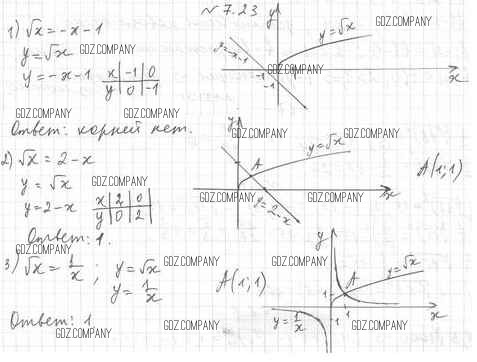 № 7.23
1) √x = -x - 1
y = √x
y = -x - 1
x | -1 | 0
y | 0 | -1
y
y = √x
y = -x - 1
-1
-1
x
Ответ: корней нет.
2) √x = 2 - x
y = √x
y = 2 - x
x | 2 | 0
y | 0 | 2
y
A
y = √x
y = 2 - x
x
A(1; 1)
Ответ: 1.
3) √x = 1/x ; y = √x
y = 1/x
A(1; 1)
y
1
A
y = √x
y = 1/x
1
x
Ответ: 1
GDZ.COMPANY
GDZ.COMPANY
GDZ.COMPANY
GDZ.COMPANY
GDZ.COMPANY
GDZ.COMPANY
GDZ.COMPANY
GDZ.COMPANY
GDZ.COMPANY
GDZ.COMPANY
GDZ.COMPANY
GDZ.COMPANY
GDZ.COMPANY
GDZ.COMPANY
GDZ.COMPANY
GDZ.COMPANY
GDZ.COMPANY
GDZ.COMPANY